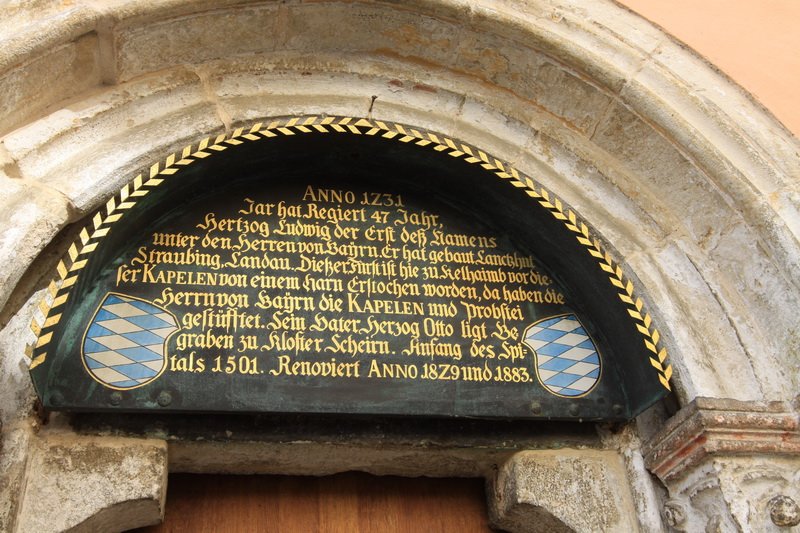 ANNO 1231
Jar hat Regiert 47 Jahr,
Hertzog Ludwig der Erst deß Namens
unter den Herren von Bayrn. Er hat gebaut Lanctzhut
Straubing, Landau. Dießer Fürst ist hie zu Kelhaimb vor die-
ser KAPELEN von einem harn Erstochen worden, da haben die
Herrn von Bayrn die KAPELEN und Probstei
gestüfftet. Sein Vater Herzog Otto ligt Be
graben zu Kloster Scheirn. Anfang des Spi-
tals 1501. Renoviert ANNO 1829 und 1883.